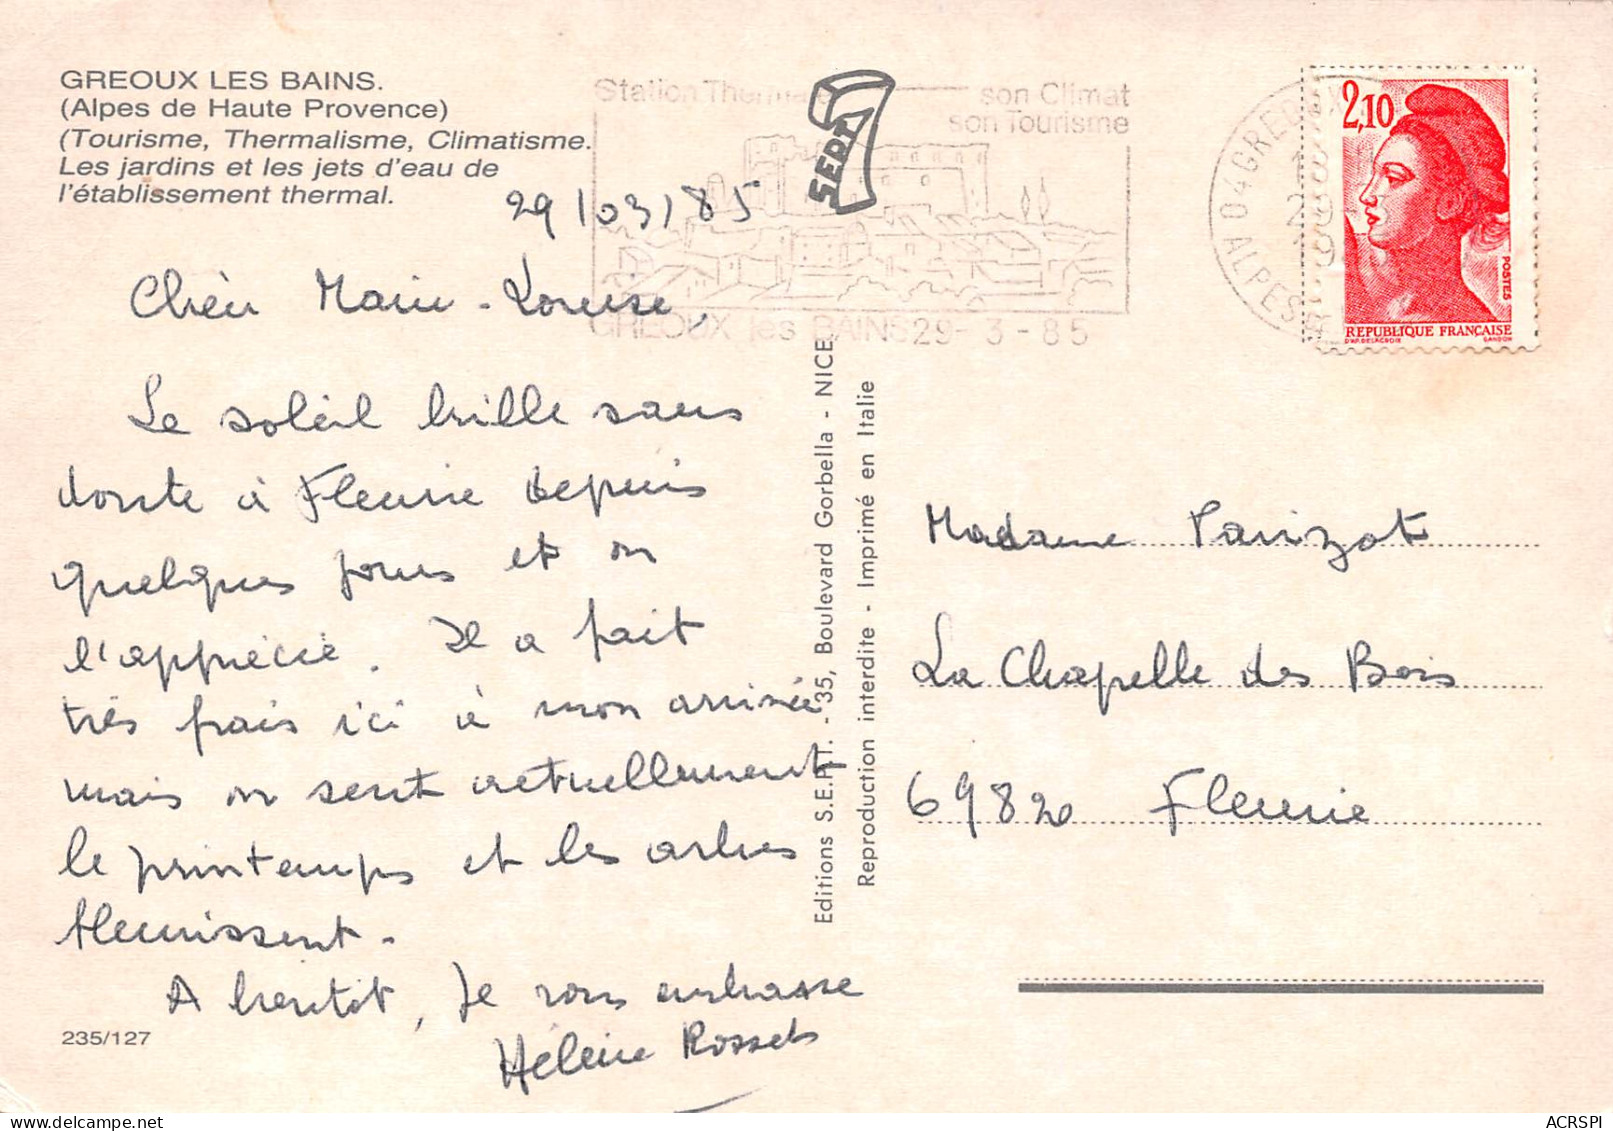 GREOUX LES BAINS.
(Alpes de Haute Provence)
(Tourisme, Thermalisme, Climatisme.
Les jardins et les jets d'eau de
l'établissement thermal.
Station Thermale
son Climat
son Tourisme
GREOUX les BAINS 29-3-85
SERT
04 GREOUX
ALPES
2,10
POSTES
REPUBLIQUE FRANÇAISE
D'AP. DELACROIX GANDON
29/03/85
Chère Marie-Louise,
Le soleil brille sans
doute à Fleurie depuis
quelques jours et on
l'apprécie. Il a fait
très frais ici à mon arrivée
mais on sent actuellement
le printemps et les arbres
fleurissent.
A bientôt, Je vous embrasse
Hélène Rossets
235/127
Editions S.E.R.T. - 35, Boulevard Gorbella - NICE
Reproduction interdite - Imprimé en Italie
Madame Parizot
La Chapelle des Bois
69820 Fleurie
ACRSPI